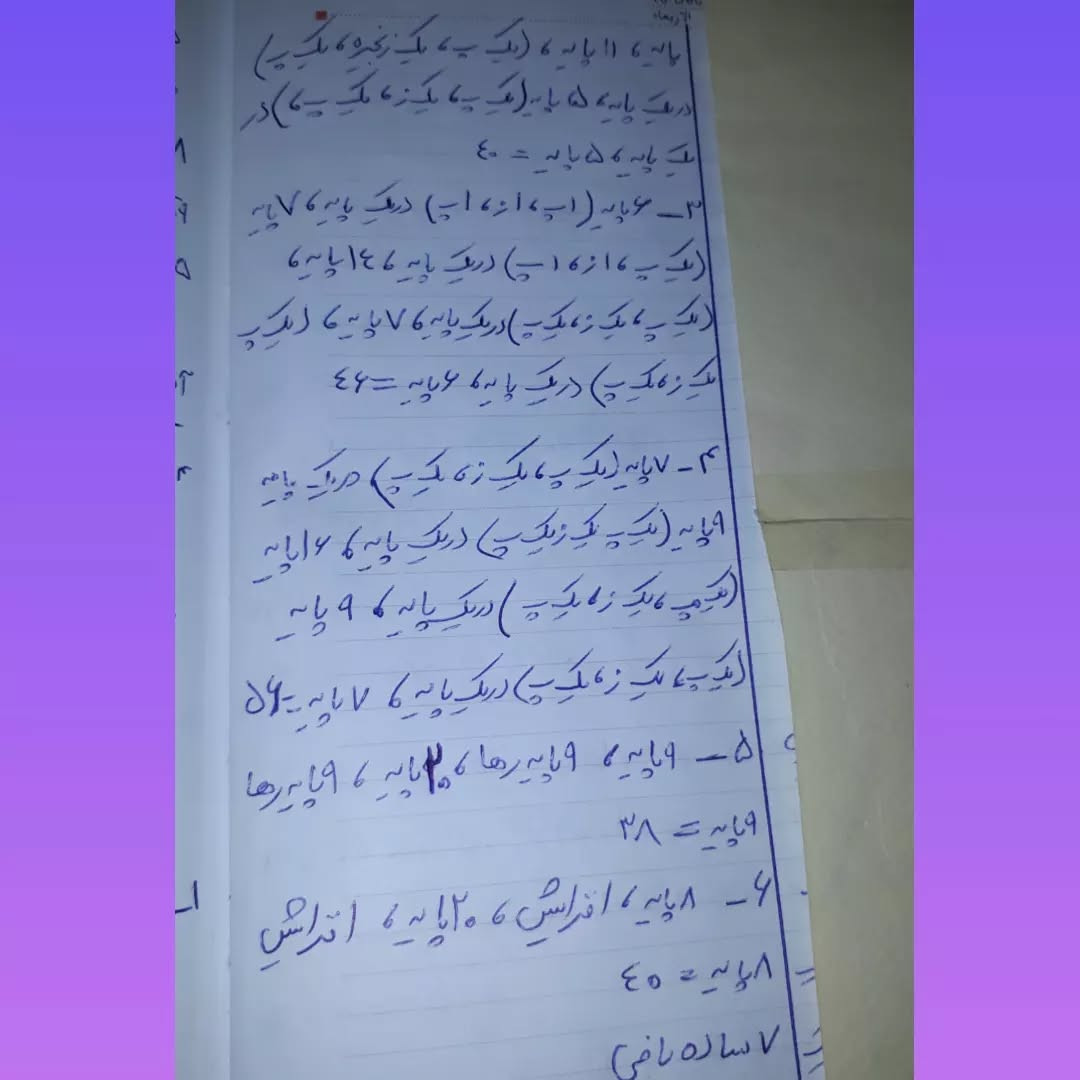 پایه، ۱۱ پایه، (یک پ، یک زنجیره، یک پ)
در یک پایه، ۵ پایه (یک پ، یک ز، یک پ،) در
یک پایه، ۵ پایه = ٤٠
۳ـ ۶ پایه (۱پ، ۱ز، ۱پ) در یک پایه، ۷ پایه
(یک پ، ۱ز، ۱پ) در یک پایه، ۱٤ پایه،
(یک پ، یک ز، یک پ) در یک پایه، ۷ پایه، (یک پ
یک ز، یک پ) در یک پایه، ۶ پایه = ٤۶
۴ـ ۷ پایه (یک پ، یک ز، یک پ) در یک پایه
۹ پایه (یک پ یک ز یک پ) در یک پایه، ۱۶ پایه
(یک پ، یک ز، یک پ) در یک پایه، ۹ پایه
(یک پ، یک ز، یک پ) در یک پایه، ۷ پایه = ۵۶
۵ـ ۹ پایه، ۹ پایه رها، ۲۰ پایه، ۹ پایه رها
۹ پایه = ۳۸
۶ـ ۸ پایه، افزایش، ۲۰ پایه، افزایش
۸ پایه = ٤٠
۷ ساده بافی